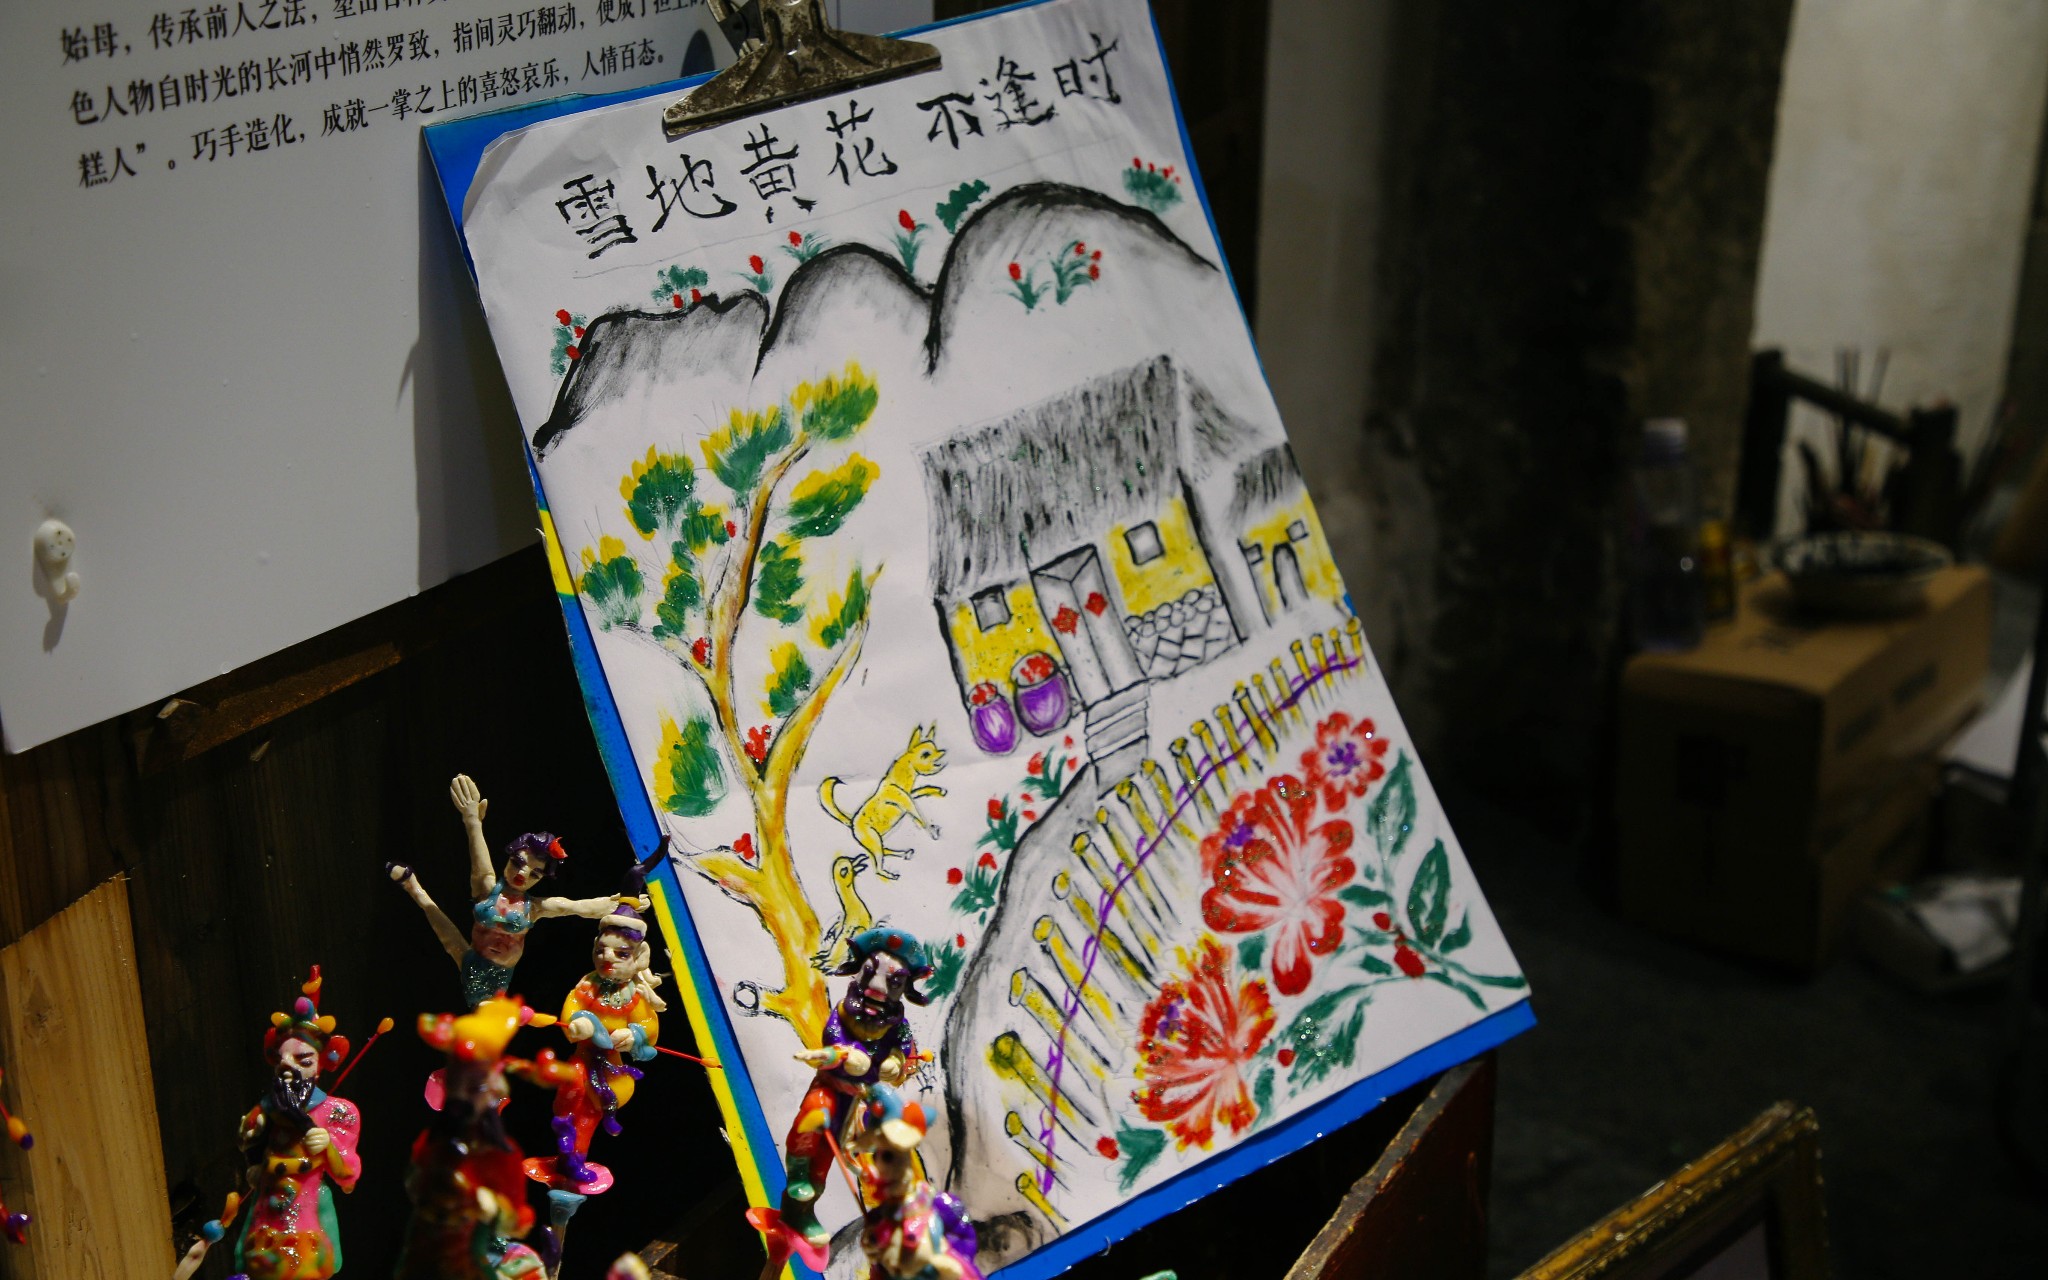 始母，传承前人之法，塑出各种
色人物自时光的长河中悄然罗致，指间灵巧翻动，便成了担上的
糕人”。巧手造化，成就一掌之上的喜怒哀乐，人情百态。
雪地黄花 不逢时